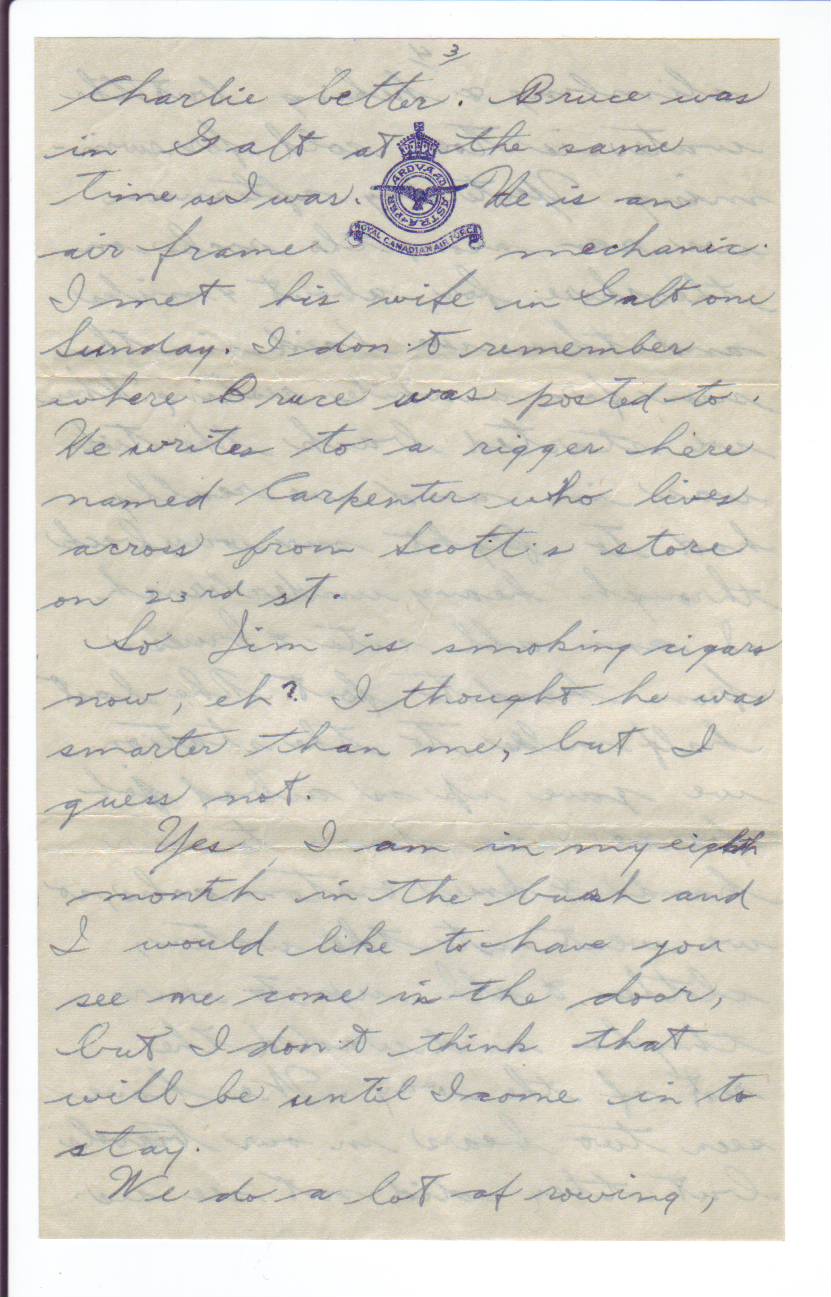 3
Charlie better. Bruce was
in Galt at the same
time as I was. He is an
PER ARDVA AD ASTRA
ROYAL CANADIAN AIR FORCE
air frame mechanic.
I met his wife in Galt one
Sunday. I don't remember
where Bruce was posted to.
He writes to a rigger here
named Carpenter who lives
across from Scott's store
on 23rd st.
So Jim is smoking cigars
now, eh? I thought he was
smarter than me, but I
guess not.
Yes, I am in my eighth
month in the bush and
I would like to have you
see me come in the door,
but I don't think that
will be until I come in to
stay.
We do a lot of rowing,